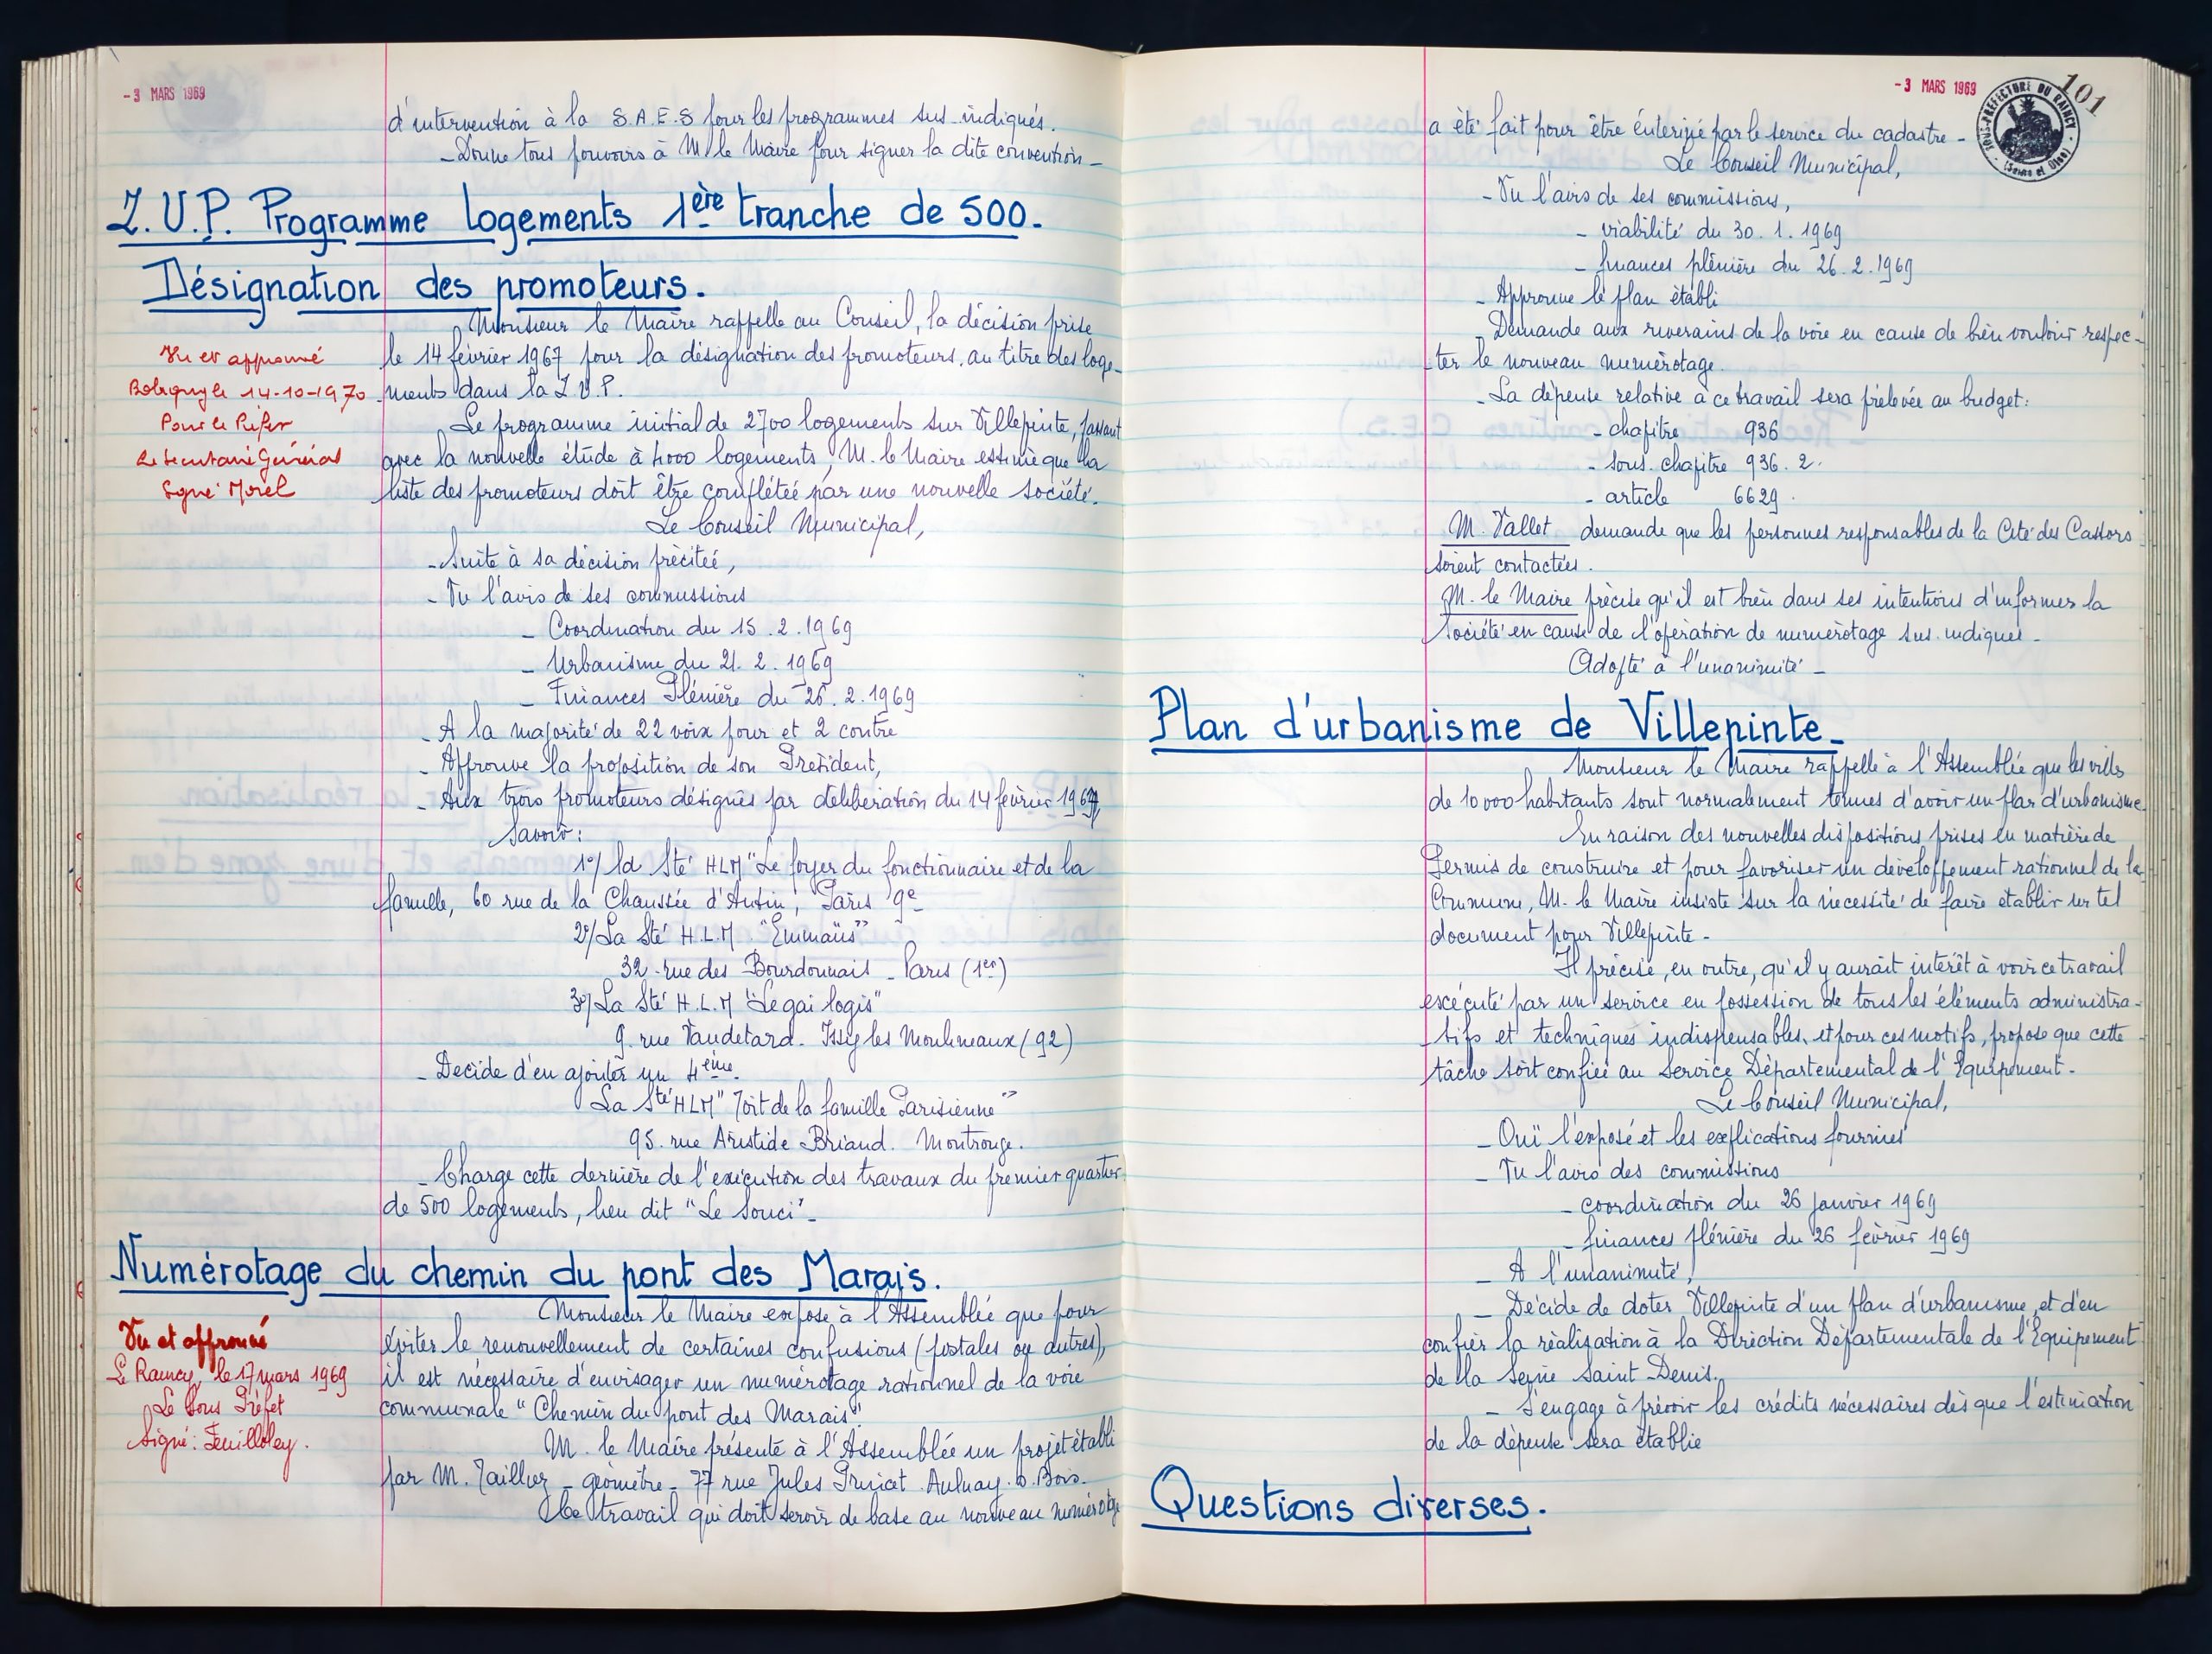 - 3 MARS 1969
d'intervention à la S.A.E.S pour les programmes sus-indiqués.
- Donne tous pouvoirs à M. le Maire pour signer la dite convention -
Z.U.P. Programme logements 1ère tranche de 500.
Désignation des promoteurs.
Monsieur le Maire rappelle au Conseil, la décision prise
le 14 février 1967 pour la désignation des promoteurs, au titre des loge-
ments dans la Z.U.P.
Vu et approuvé
Bobigny le 14-10-1970
Pour le Préfet
Le Secrétaire Général
Signé Morel
Le programme initial de 2700 logements sur Villepinte, passant
avec la nouvelle étude à 4000 logements, M. le Maire estime que la
liste des promoteurs doit être complétée par une nouvelle société.
Le Conseil Municipal,
- Suite à sa décision précitée,
- Vu l'avis de ses commissions
- Coordination du 15.2.1969
- Urbanisme du 21.2.1969
- Finances Plénière du 26.2.1969
- A la majorité de 22 voix pour et 2 contre
- Approuve la proposition de son Président,
- Aux trois promoteurs désignés par délibération du 14 février 1967,
savoir :
1°/ La Sté HLM "Le foyer du fonctionnaire et de la
famille, 60 rue de la Chaussée d'Antin, Paris 9e
2°/ La Sté H.L.M "Emmaüs"
32 rue des Bourdonnais - Paris (1er)
3°/ La Sté H.L.M "Le gai logis"
9. rue Vaudetard. Issy les Moulineaux (92)
- Décide d'en ajouter un 4ème.
La Sté HLM "Toit de la famille Parisienne"
95. rue Aristide Briand. Montrouge.
- Charge cette dernière de l'exécution des travaux du premier quartier
de 500 logements, lieu dit "Le Souci" -
Numérotage du chemin du pont des Marais.
Monsieur le Maire expose à l'Assemblée que pour
éviter le renouvellement de certaines confusions (postales ou autres),
il est nécessaire d'envisager un numérotage rationnel de la voie
communale "Chemin du pont des Marais".
Vu et approuvé
Le Raincy, le 17 mars 1969
Le Sous Préfet
Signé : Feuilloley.
M. le Maire présente à l'Assemblée un projet établi
par M. - géomètre - 77 rue Jules Princet. Aulnay. s. Bois.
Ce travail qui doit servir de base au nouveau numérotage
- 3 MARS 1969
101
SOUS-PRÉFECTURE DU RAINCY
(Seine et Oise)
a été fait pour être entériné par le service du cadastre -
Le Conseil Municipal,
- Vu l'avis de ses commissions,
- viabilité du 30.1.1969
- finances plénière du 26.2.1969
- Approuve le plan établi
- Demande aux riverains de la voie en cause de bien vouloir respec-
-ter le nouveau numérotage.
- La dépense relative à ce travail sera prélevée au budget :
- chapitre 936
- sous. chapitre 936.2.
- article 6629.
M. Vallet demande que les personnes responsables de la Cité des Castors
soient contactées.
M. le Maire précise qu'il est bien dans ses intentions d'informer la
société en cause de l'opération de numérotage sus-indiquée -
Adopté à l'unanimité -
Plan d'urbanisme de Villepinte -
Monsieur le Maire rappelle à l'Assemblée que les villes
de 10 000 habitants sont normalement tenues d'avoir un plan d'urbanisme.
En raison des nouvelles dispositions prises en matière de
Permis de construire et pour favoriser un développement rationnel de la
Commune, M. le Maire insiste sur la nécessité de faire établir un tel
document pour Villepinte -
Il précise, en outre, qu'il y aurait intérêt à voir ce travail
exécuté par un service en possession de tous les éléments administra-
-tifs et techniques indispensables, et pour ces motifs, propose que cette
tâche soit confiée au Service Départemental de l'Equipement.
Le Conseil Municipal,
- Ouï l'exposé et les explications fournies
- Vu l'avis des commissions
- coordination du 26 janvier 1969
- finances plénière du 26 février 1969
- A l'unanimité,
- Décide de doter Villepinte d'un plan d'urbanisme, et d'en
confier la réalisation à la Direction Départementale de l'Equipement
de la Seine Saint Denis.
- S'engage à prévoir les crédits nécessaires dès que l'estimation
de la dépense sera établie
Questions diverses.